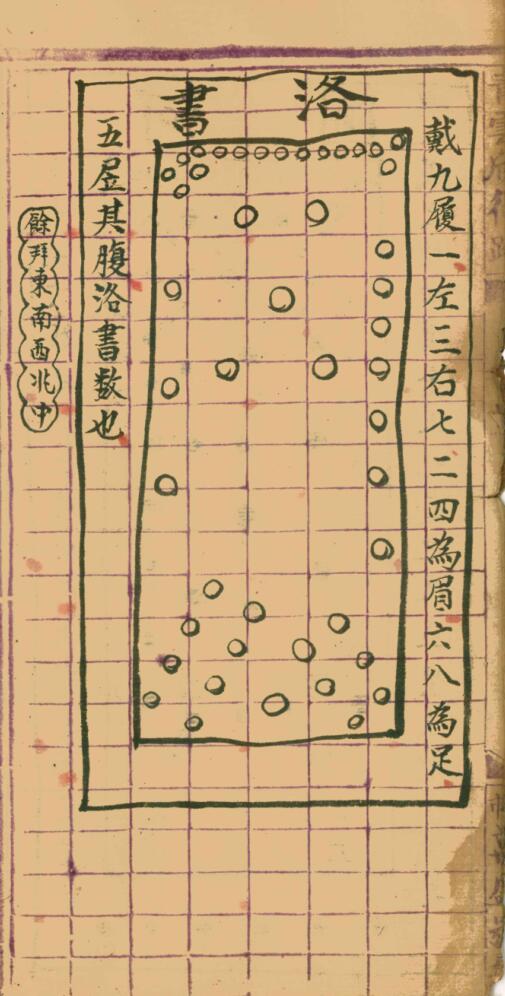 洛書
戴九履一左三右七二四為眉六八為足
五居其腹洛書数也
餘拜東南西北中